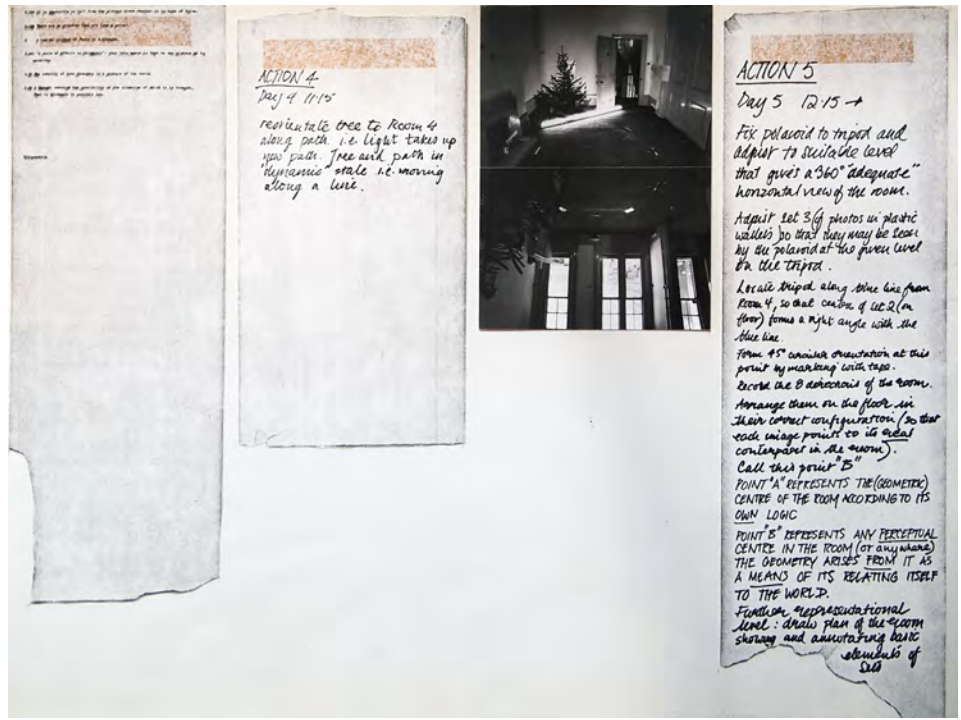 ACTION 4
Day 4 11.15
reorientate tree to Room 4
along path i.e. light takes up
new path. Tree and path in
"dynamic" state i.e. moving
along a line.
ACTION 5
Day 5 12.15 →
Fix polaroid to tripod and
adjust to suitable level
that gives a 360° "adequate"
horizontal view of the room.
Adjust set 3 (of photos in plastic
wallets) so that they may be seen
by the polaroid at the given level
on the tripod.
Locate tripod along blue line from
Room 4, so that centre of set 2 (on
floor) forms a right angle with the
blue line.
Form 45° orientation at this
point by marking with tape.
Record the 8 directions of the room.
Arrange them on the floor in
their correct configuration (so that
each image points to its real
counterpart in the room).
Call this point "B"
POINT "A" REPRESENTS THE (GEOMETRIC)
CENTRE OF THE ROOM ACCORDING TO ITS
OWN LOGIC
POINT "B" REPRESENTS ANY PERCEPTUAL
CENTRE IN THE ROOM (or anywhere)
THE GEOMETRY ARISES FROM IT AS
A MEANS OF ITS RELATING ITSELF
TO THE WORLD.
Further representational
level: draw plan of the room
showing and annotating basic
elements of
Sets